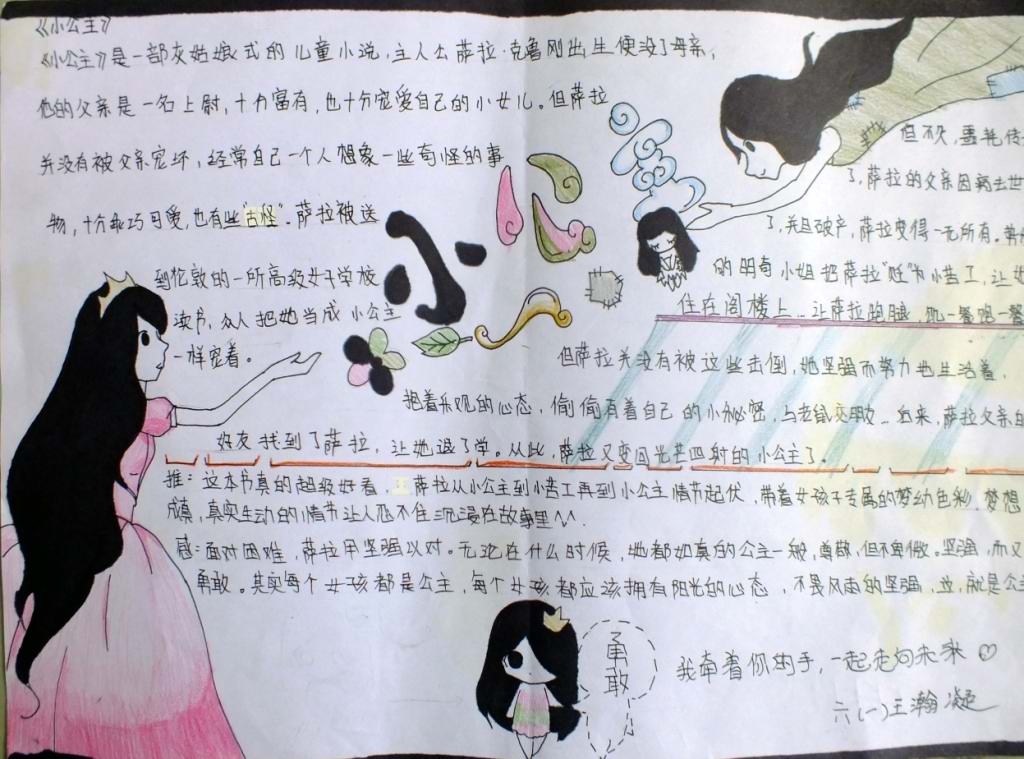 《小公主》
《小公主》是一部灰姑娘式的儿童小说,主人公萨拉·克鲁刚出生便没了母亲,
他的父亲是一名上尉,十分富有,也十分宠爱自己的小女儿。但萨拉
并没有被父亲宠坏,经常自己一个人想象一些奇怪的事
物,十分乖巧可爱,也有些“古怪”。萨拉被送
到伦敦的一所高级女子学校
读书,众人把她当成小公主
一样宠着。
小
但不久,噩耗传
了,萨拉的父亲因病去世
了,并且破产,萨拉变得一无所有。势
的明奇小姐把萨拉“贬”为小苦工,让
住在阁楼上...让萨拉
但萨拉并没有被这些击倒,她坚强而努力地生活着,
抱着乐观的心态,偷偷有着自己的小秘密,与老鼠交朋友...后来,萨拉父亲的
好友找到了萨拉,让她退了学。从此,萨拉又变回光芒四射的小公主了。
推:这本书真的超级好看,萨拉从小公主到小苦工再到小公主情节起伏,带着女孩子专属的梦幻色彩.梦想
成真,真实生动的情节让人忍不住沉浸在故事里^^.
感:面对困难,萨拉用坚强以对。无论在什么时候,她都如真的公主一般,尊敬,但不卑微。坚强,而又
勇敢。其实每个女孩都是公主,每个女孩都应该拥有阳光的心态,不畏风雨的坚强,也,就是公主
勇敢
我牵着你的手,一起走向未来♡
六(一)王瀚凝